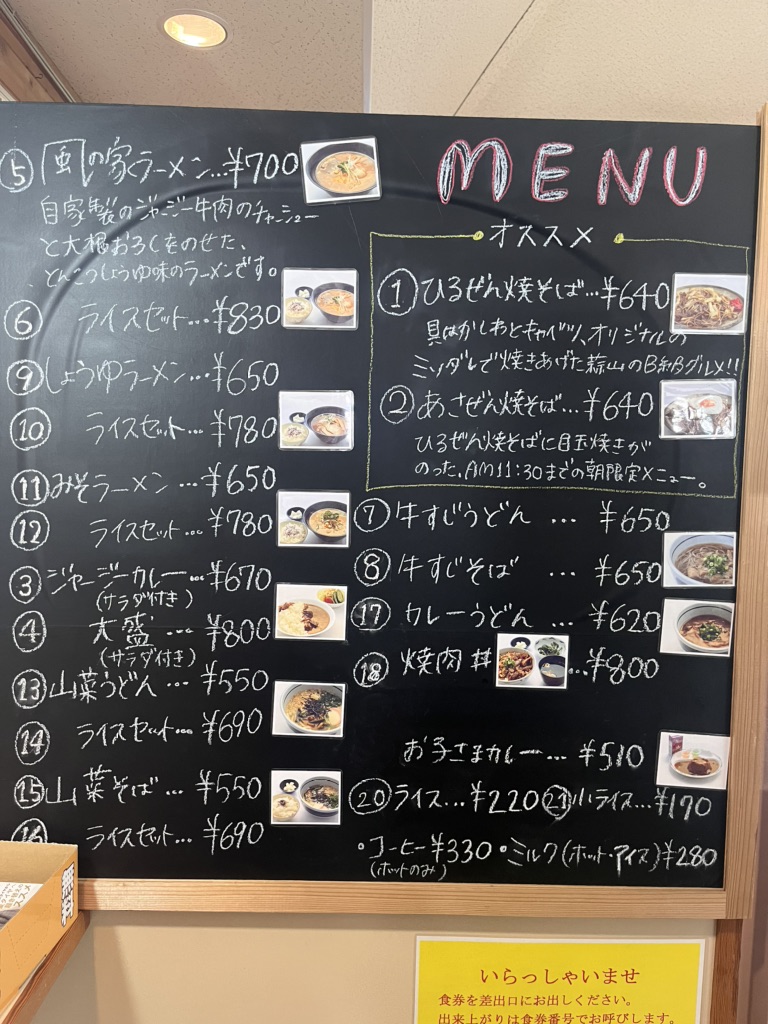 MENU
オススメ
① ひるぜん焼そば…¥640
具はかしわとキャベツ、オリジナルの
ミソダレで焼きあげた蒜山のB級グルメ!!
② あさぜん焼そば…¥640
ひるぜん焼そばに目玉焼きが
のった、AM11:30までの朝限定メニュー。
⑤ 風の家ラーメン…¥700
自家製のジャージー牛肉のチャーシュー
と大根おろしをのせた、
とんこつしょうゆ味のラーメンです。
⑥ ライスセット…¥830
⑨ しょうゆラーメン…¥650
⑩ ライスセット…¥780
⑪ みそラーメン…¥650
⑫ ライスセット…¥780
③ ジャージーカレー…¥670
(サラダ付き)
④ 大盛…¥800
(サラダ付き)
⑬ 山菜うどん…¥550
⑭ ライスセット…¥690
⑮ 山菜そば…¥550
⑯ ライスセット…¥690
⑦ 牛すじうどん…¥650
⑧ 牛すじそば…¥650
⑰ カレーうどん…¥620
⑱ 焼肉丼…¥800
お子さまカレー…¥510
⑳ ライス…¥220 ㉑ 小ライス…¥170
・コーヒー¥330 ・ミルク(ホット・アイス)¥280
(ホットのみ)
無料
いらっしゃいませ
食券を差出口にお出しください。
出来上がりは食券番号でお呼びします。